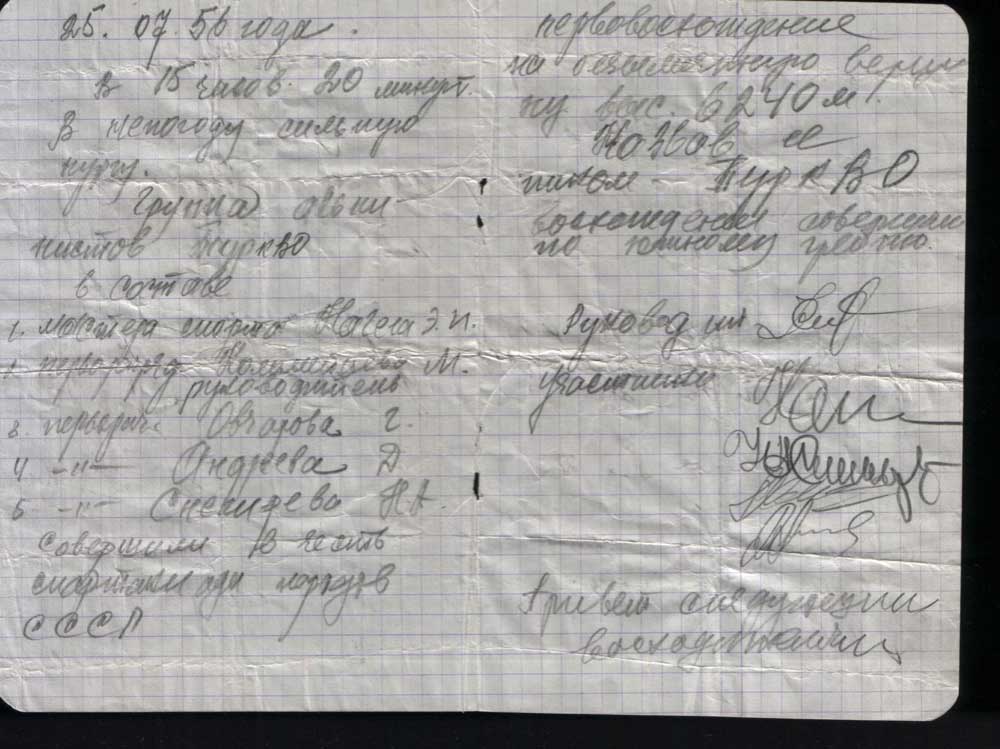 25. 07. 56 года.
В 15 часов. 20 минут.
В непогоду сильную
пургу.
Группа альпи-
нистов ТуркВО
в составе
1. мастера спорта Нагела Э.И.
перворазр. М.
руководитель
3. перворазр. Овчарова Г.
4 -"- Андреева Д
5 -"- Снегирева Н А.
совершили В честь
спартакиады народов
СССР
первовосхождение
на безымянную верши
ну выс. 6240 м.
Назвав ее
пиком - ТуркВО
восхождение совершили
по южному гребню.
Руковод ил
Участники
Привет следующим
восходителям